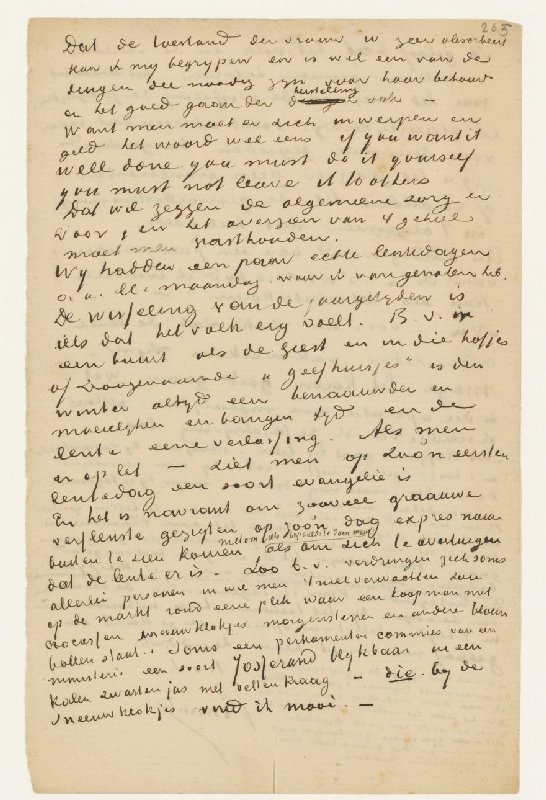 265
Dat de toestand der vrouw u zeer absorbeert
kan ik my begrypen en er is wel een van de
dingen die noodig zyn voor haar behoud
en het goed gaan der verlossing
Want men moet er zich inwerpen en
geld het woord wel eens if you want it
well done you must do it yourself
you must not leave it to others
Dat wil zeggen de algemeene zorg er
voor, en het overzien van 't geheel
moet men vasthouden.
Wy hadden een paar echte lentedagen
o.a. ll. maandag waar ik van genoten heb.
De wisseling van de jaargetyden is
iets dat het volk erg voelt. B.v. in
een buurt als de geest en in die hofjes
of zoogenaamde „geefhuisjes" is den
winter altyd een benaauwden en
moeielyken en bangen tyd en de
lente eene verlossing. Als men
er op let – ziet men op zóó'n eersten
lentedag een soort evangelie is
En het is navrant om zooveel graauwe
verfletste gezigten op zoo'n dag expres naar
buiten te zien komen als om zich te overtuigen
dat de lente er is. Zoo b.v. verdringen zich soms
allerlei personen in wie men 't niet verwachten zou
op de markt rond eene plek waar een koopman met
crocussen sneeuwklokjes morgensterren en andere bloem
bollen staat. Soms een perkamenten commies van een
ministerie een soort Josserand blykbaar in een
kalen zwarten jas met vetten kraag – die. by de
sneeuwklokjes vind ik mooi. –